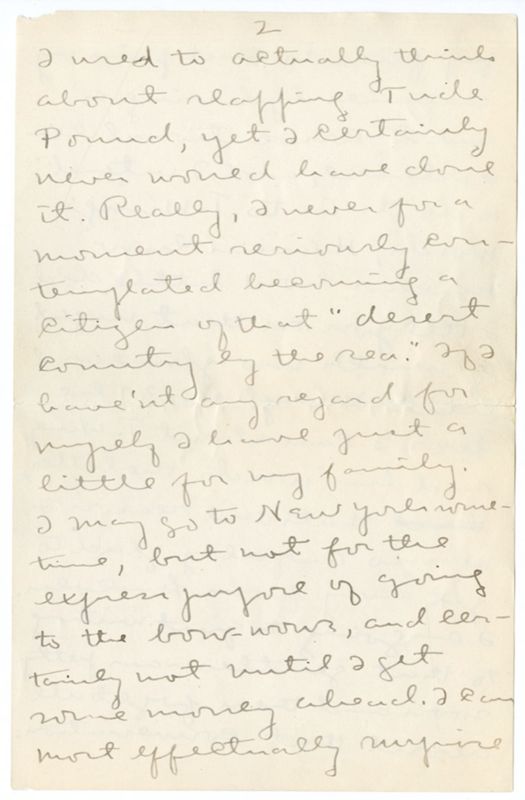 2
I used to actually think
about slapping Tude
Pound, yet I certainly
never would have done
it. Really, I never for a
moment seriously con-
templated becoming a
citizen of that "desert
country by the sea." If I
have'nt any regard for
myself I have just a
little for my family.
I may go to New York some-
time, but not for the
express purpose of going
to the bow-wows, and cer-
tainly not until I get
some money ahead. I can
most effectually